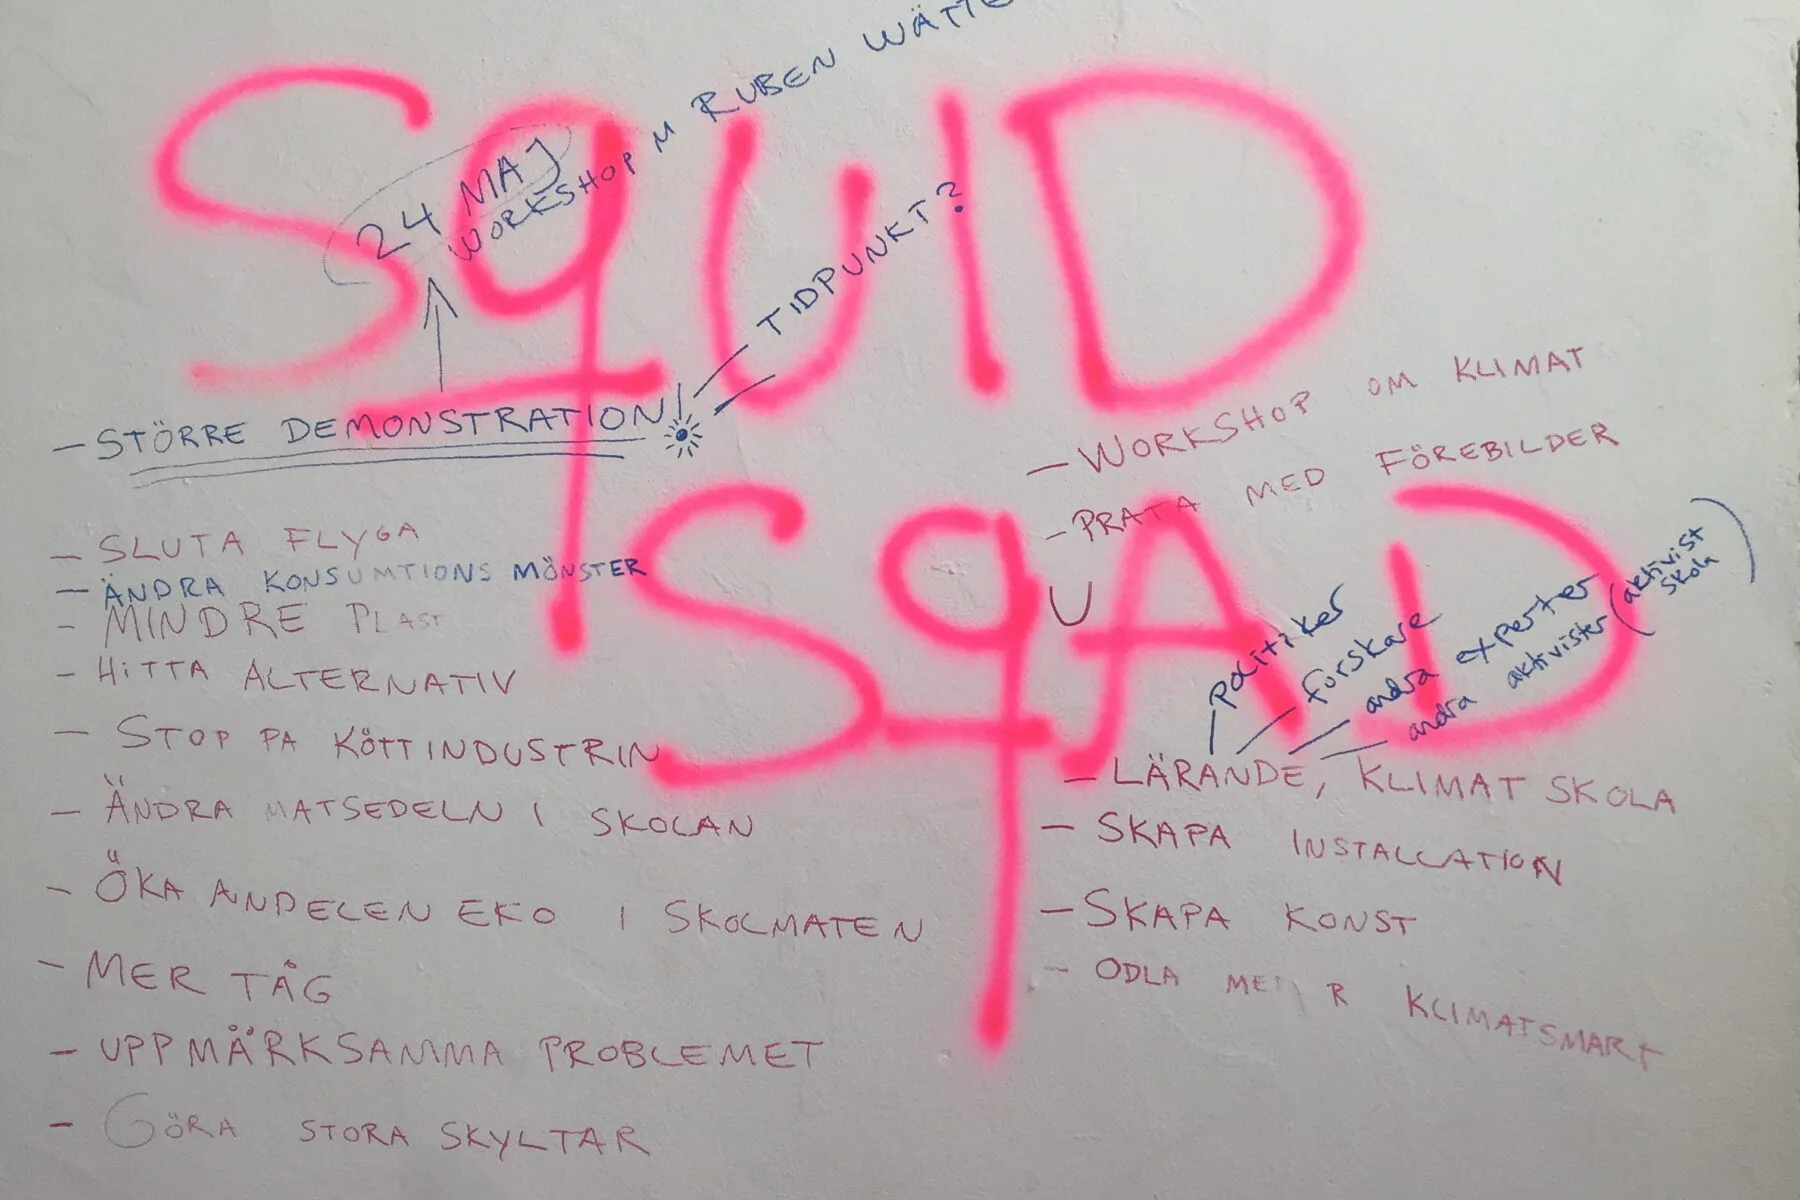 SQUID
SQUAD
24 MAJ
WORKSHOP M RUBEN
TIDPUNKT?
- STÖRRE DEMONSTRATION!
- SLUTA FLYGA
- ÄNDRA KONSUMTIONS MÖNSTER
- MINDRE PLAST
- HITTA ALTERNATIV
- STOP PA KÖTTINDUSTRIN
- ÄNDRA MATSEDELN I SKOLAN
- ÖKA ANDELEN EKO I SKOLMATEN
- MER TÅG
- UPPMÄRKSAMMA PROBLEMET
- GÖRA STORA SKYLTAR
- WORKSHOP OM KLIMAT
- PRATA MED FÖREBILDER
politiker
forskare
andra experter
andra aktivister (aktivist skola)
- LÄRANDE, KLIMAT SKOLA
- SKAPA INSTALLATION
- SKAPA KONST
- ODLA MER KLIMATSMART